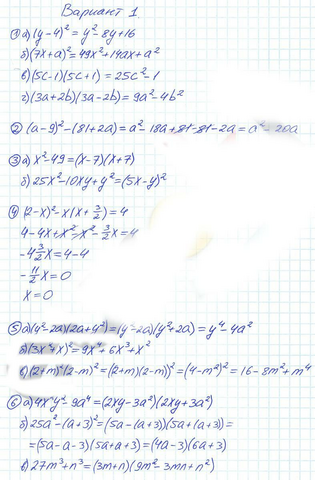 Вариант 1
① а) (y-4)² = y² - 8y + 16
б) (7x+a)² = 49x² + 14ax + a²
в) (5c-1)(5c+1) = 25c² - 1
г) (3a+2b)(3a-2b) = 9a² - 4b²
② (a-9)² - (81+2a) = a² - 18a + 81 - 81 - 2a = a² - 20a
③ а) x² - 49 = (x-7)(x+7)
б) 25x² - 10xy + y² = (5x-y)²
④ (2-x)² - x(x + 3/2) = 4
4 - 4x + x² - x² - 3/2 x = 4
-4 3/2 x = 4 - 4
- 11/2 x = 0
x = 0
⑤ а) (y² - 2a)(2a + y²) = (y² - 2a)(y² + 2a) = y⁴ - 4a²
б) (3x² + x)² = 9x⁴ + 6x³ + x²
в) (2+m)²(2-m)² = ((2+m)(2-m))² = (4-m²)² = 16 - 8m² + m⁴
⑥ а) 4x²y² - 9a⁴ = (2xy - 3a²)(2xy + 3a²)
б) 25a² - (a+3)² = (5a - (a+3))(5a + (a+3)) =
= (5a - a - 3)(5a + a + 3) = (4a - 3)(6a + 3)
в) 27m³ + n³ = (3m + n)(9m² - 3mn + n²)